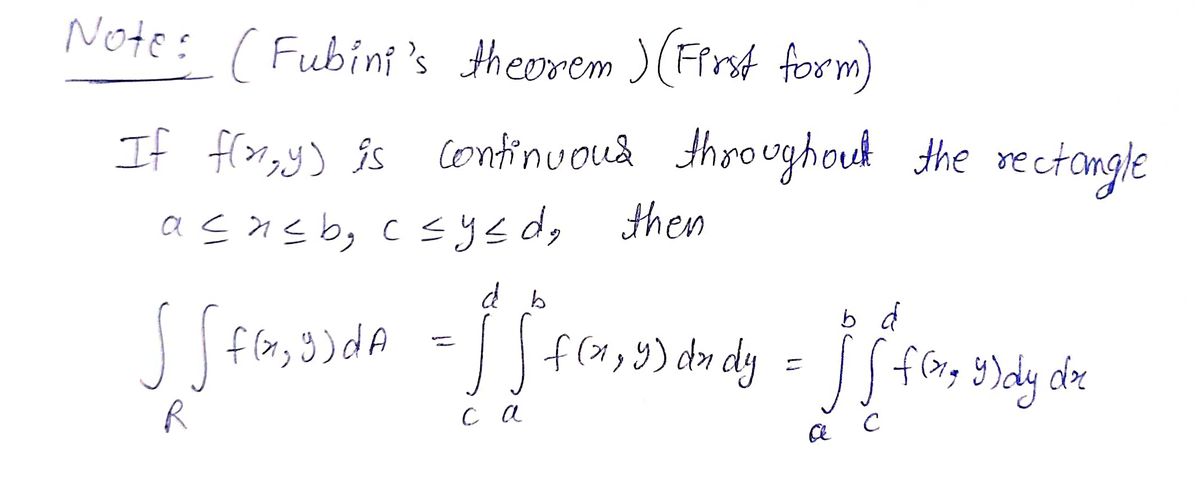 Note: (Fubini's theorem) (First form)
If f(x,y) is continuous throughout the rectangle
a ≤ x ≤ b, c ≤ y ≤ d, then
∫∫_R f(x,y) dA = ∫_c^d ∫_a^b f(x,y) dx dy = ∫_a^b ∫_c^d f(x,y) dy dx